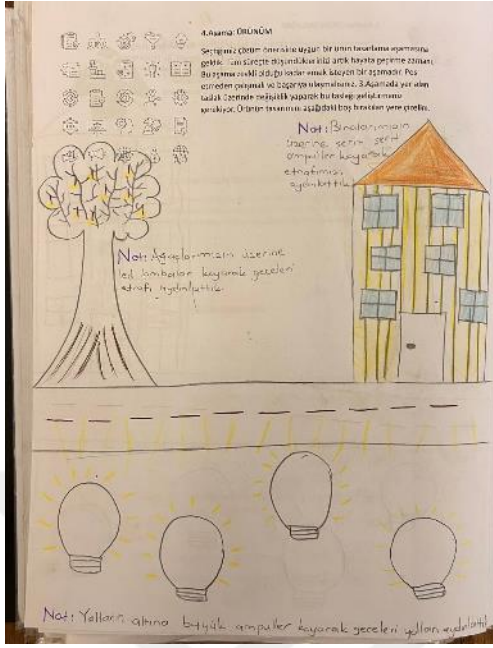 4.Aşama: ÜRÜNÜM
Seçtiğimiz çözüm önerisine uygun bir ürün tasarlama aşamasına
geldik. Tüm süreçte düşündüklerinizi artık hayata geçirme zamanı.
Bu aşama zevkli olduğu kadar emek isteyen bir aşamadır. Pes
etmeden çalışmalı ve başarıya ulaşmalısınız. 3.Aşamada yer alan
taslak üzerinde değişiklik yaparak bu taslağı geliştirmemiz
gerekiyor. Ürünün tasarımını aşağıdaki boş bırakılan yere çizelim.
Not: Binalarımızın
üzerine şerit şerit
ampuller koyarak
etrafımızı
aydınlattık
Not: Ağaçlarımızın üzerine
led lambalar koyarak geceleri
etrafı aydınlattık.
Not: Yolların altına büyük ampuller koyarak geceleri yolları aydınlattık